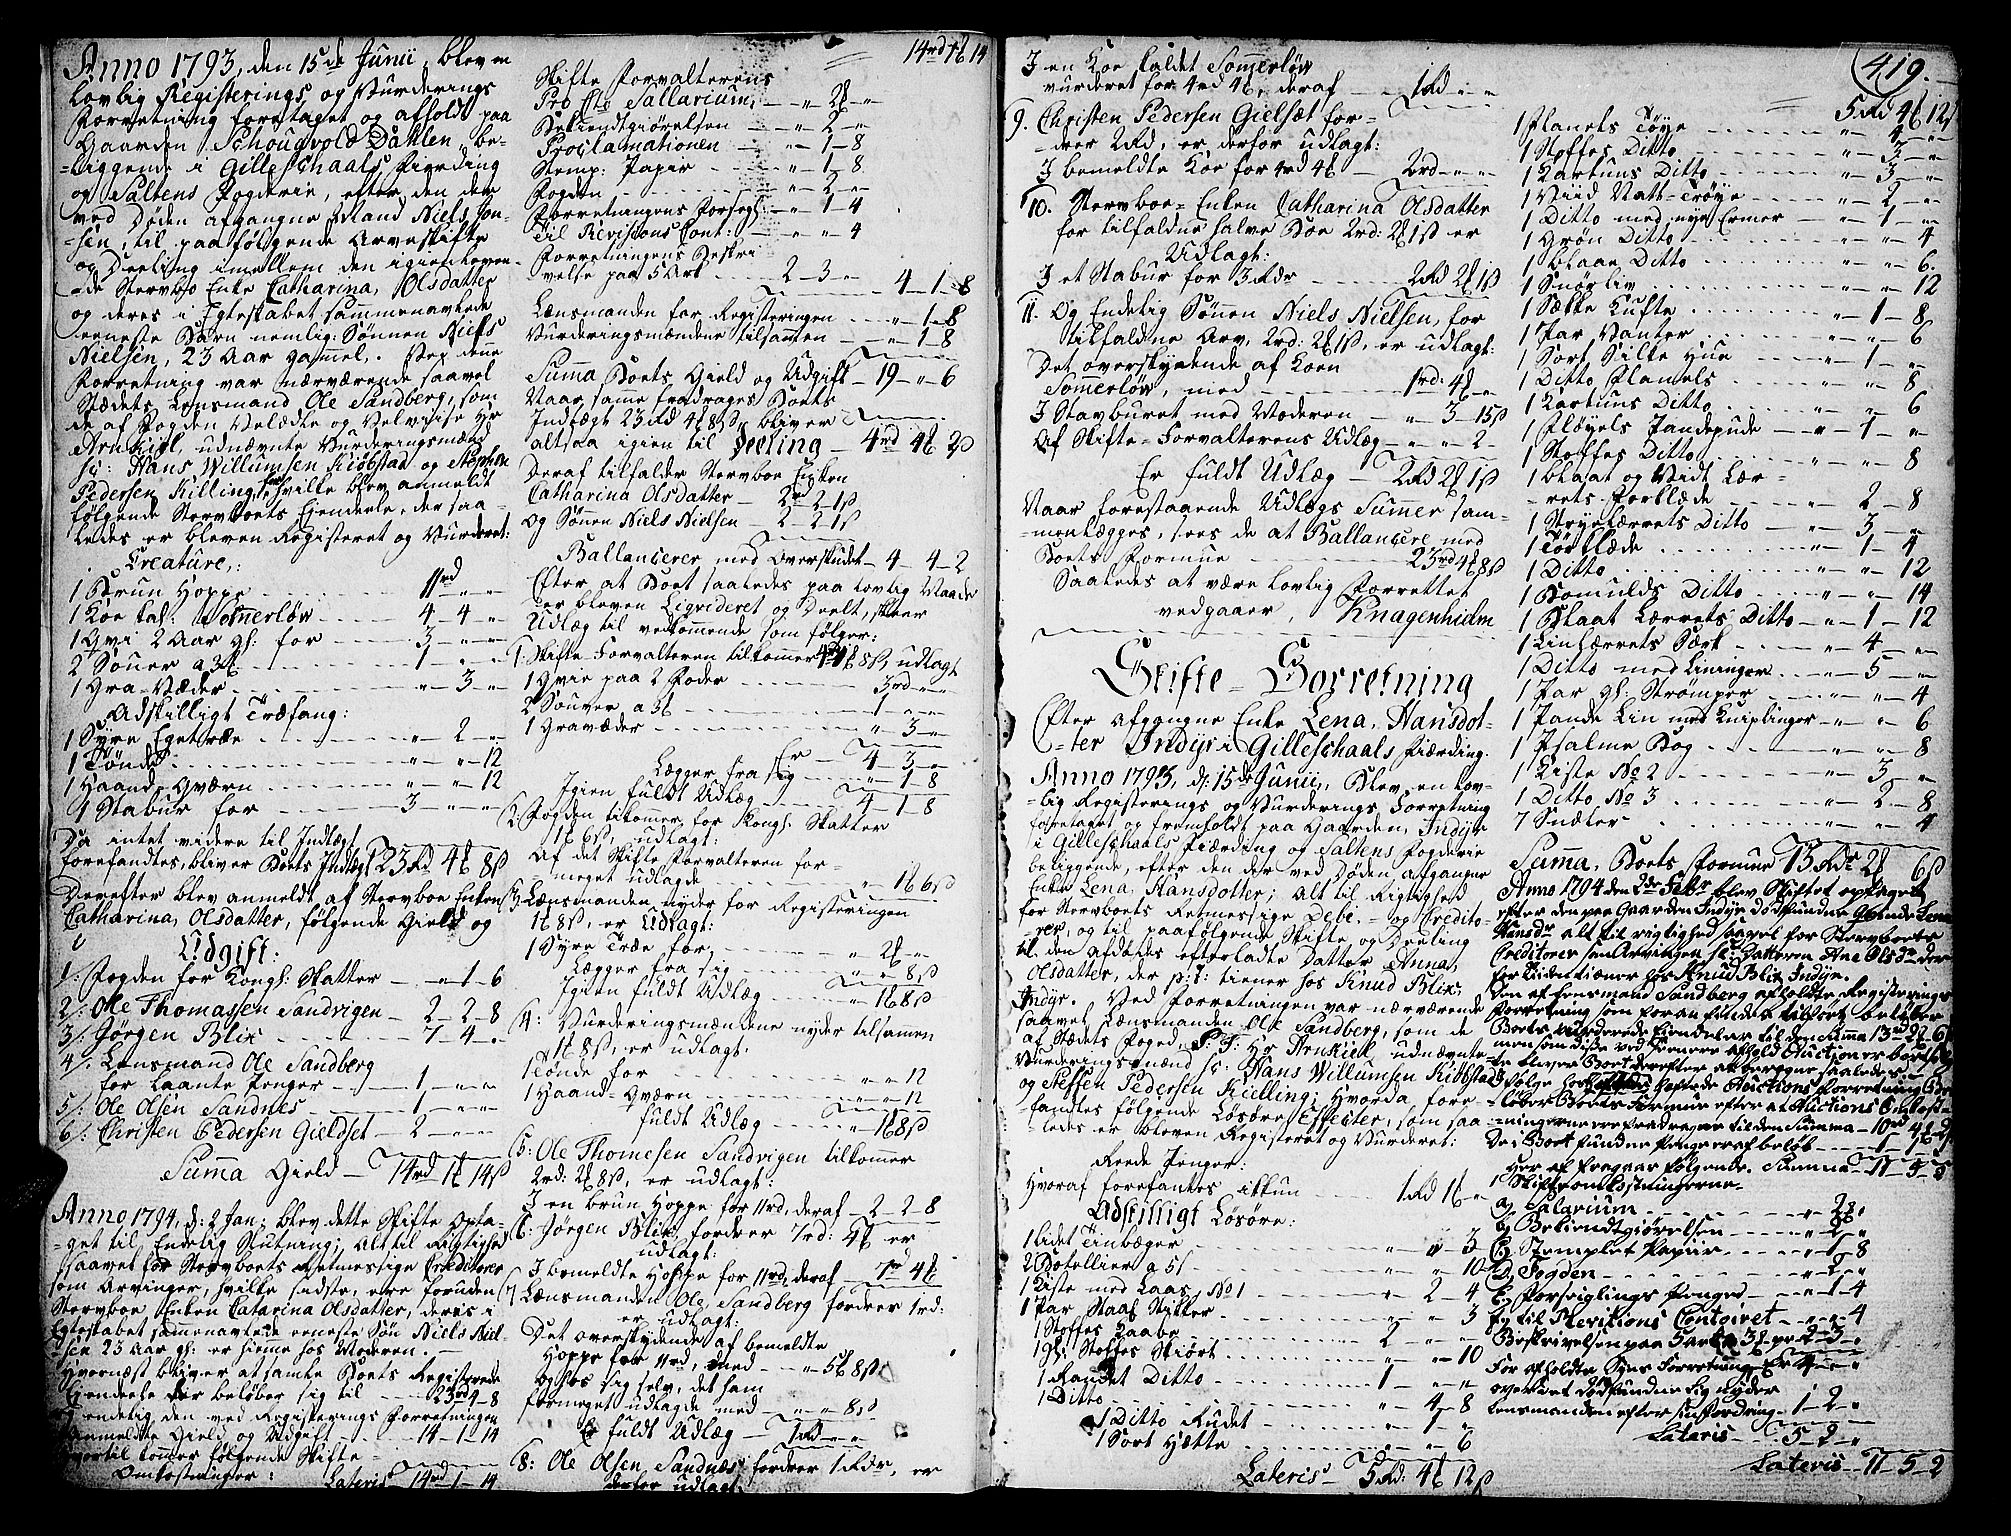 Anno 1793, den 15de Junii, blev en
Lovlig Registerings og Vurderings
Forretning foretaget og afholdt paa
Gaarden Schougvold Dahlen, be-
-liggende i Gilleschaals Fierding
og Saltens Fogderie, efter den der
ved Døden afgangne Mand Niels Jon-
-sen, til paafølgende Arveskifte
og Deeling imellem den igienleven-
-de Stervbo Enke Catharina Olsdatter
og deres i Egteskabet sammenavlede
eeneste Barn nemlig: Sønnen Niels
Nielsen, 23 Aar gamel. Ved denne
Forretning var nærværende saavel
Stædets Lensmand Ole Sandberg, som
de af Fogden Velædle og Velviise Hr
Arnkiel, udnævnte Vurderingsmænd
sc: Hans Willumsen Kiøbstad og Stephen
Pedersen Killing, hvilke blev anmeldt
følgende Stervboets Ejendeele, der saa-
ledes er bleven Registeret og Vurderet:
Creature,:
1 Brun Hoppe 11rd " "
1 Koe kal: Somerløv 4 - 4 - "
1 Qvi 2 Aar gl: for 3 " "
2 Souer a 3 1 " "
1 Gra-Væder " - 3 - "
Adskilligt Træfang:
1 Syre Egetræe " - 2 - "
1 Tønde " " - 12
1 Haand-Qværn " " - 12
1 Stabur for 3 " "
Da intet videre til Indlæg
forefandtes, bliver Boets Indtægt 23Rd 4 8ß
Derefter blev anmeldt af Stervboe Enken
Catharina Olsdatter, følgende Gield og
Udgift:
1: Fogden for Kongl: Skatter " - 1 - 6
2: Ole Thomassen Sandvigen - 2 - 2 - 8
3: Jørgen Blix 7 - 4 - "
4: Lensmand Ole Sandberg
for Laante Penger 1 " "
5: Ole Olsen Sandnes 1 " "
6: Christen Pedersen Gieldset - 2 "
Suma Gield - 14rd 1 14ß
Anno 1794, d: 2 Jan: blev dette Skifte opta-
-get til Endelig Slutning; Alt til Rigtighed
saavel for Stervboets Retmessige Creditorer
som Arvinger, hvilke sidste, ere foruden
Stervboe Enken Catarina Olsdatter, deres i
Egteskabet sammenavlede eeneste Søn Niels Niel-
-sen 23 Aar gl: er hieme hos Moderen.
Hvornæst bliver at samle Boets Registrerede
Ejendeele der beløber sig til 23rd 4 - 8
endelig den ved Registerings Forretningen
Anmeldte Gield og Udgift 14 - 1 - 14
hvortil kommer følgende Skifte-
Omkostninger:
Lateris 14rd - 1 - 14
14rd 1 14
Skifte Forvalterens
Pro Sallarium, - " 2 "
Bekiendtgiørelsen - " - 2 - "
Proclamationen - " - 1 - 8
Stemp: Papir " - 1 - 8
Fogden " - 2 - "
Forretningens Forsegl: - " - 1 - 4
Til Revisions Cont: - " " - 4
Forretningens Beskri
velse paa 5 Ark 2 - 3 - "
4 - 1 - 8
Lænsmanden for Registeringen " - 1 - 8
Vurderingsmændene tilsammen " - 1 - 8
Suma Boets Gield og Udgift - 19 - " - 6
Naar same fradrages Boets
Indtægt 23Rd 4 8ß, bliver
altsaa igien til Deeling - 4rd 4 2ß
Deraf tilfalder Stervboe Enken
Catharina Olsdatter - 2rd 2 1ß
og Sønnen Niels Nielsen - 2 - 2 1ß
Ballancerer med overskudet - 4 - 4 - 2
Efter at Boet saaledes paa lovlig Maade
er bleven Liqvideret og Deelt, skeer
Udlæg til vedkommende som følger:
1: Skifte Forvalteren tilkommer 4rd 1 8ß, udlagt
1 Qvie paa 2 Foder 3rd " "
2 Souver a 3 1 " "
1 Gravæder " 3 "
Er - 4 - 3 - "
Lægger fra sig " - 1 - 8
Igien fuldt Udlæg 4 - 1 - 8
2: Fogden tilkomer for Kongl: Skatter
1 6ß, udlagt:
Af det Skifte Forvalteren for-
-meget udlagde " 1 6ß
3: Lænsmanden nyder for Registeringen
1 8ß, er Udlagt:
1 Syre Træ for " 2 "
Lægger fra sig " " 8ß
Igien fuldt Udlæg " 1 8ß
4: Vurderingsmændene nyder tilsamen
1 8ß, er udlagt:
1 Tønde for " " 12
1 Haand-Qværn " " 12
fuldt Udlæg " 1 8ß
5: Ole Thomesen Sandvigen tilkommer
2rd: 2 8ß, er udlagt:
I en brun Hoppe for 11rd, deraf - 2 - 2 - 8
6: Jørgen Blix, fordrer 7rd: 4 er
udlagt:
I bemeldte Hoppe for 11rd, deraf - 7rd 4
7: Lænsmanden Ole Sandberg fordrer 1rd:
er udlagt:
Det overskydende af bemeldte
Hoppe for 11rd, med " 5 8ß
Og hos sig selv, det ham
formeget udlagde med " " 8ß
Er fuldt Udlæg - 1Rd " "
8: Ole Olsen Sandnæs fordrer 1 Rdr, er
derfor udlagt:
I en Koe kaldet Somerløv
vurderet for 4rd 4, deraf 1Rd " "
9. Christen Pedersen Gielset for-
-derer 2Rd, er derfor udlagt:
I bemeldte Koe for 4rd 4 2rd " "
10. Stervboe-Enken Catharina Olsdatter
for tilfaldne halve Boe 2rd: 2 1ß er
Udlagt:
I et Stabur for 3 Rdr 2Rd 2 1ß
11. Og Endelig Sønnen Niels Nielsen, for
tilfaldne Arv, 2rd: 2 1ß, er udlagt:
Det overskydende af Koen
Somerløv, med 1rd: 4 "
I Stavburet med Moderen " 3 - 15ß
Af Skifte-Forvalterens Udlæg - " " 2 -
Er fuldt Udlæg - 2Rd 2 1ß
Naar forestaaende Udlægs Sumer sam-
-menlægges, sees de at Ballancere med
Boets Formue 23rd 4 8ß
Saaledes at være lovlig Forrettet
vedgaaer, Knagenhielm
Skifte-Forretning
Efter afgangne Enke Lena Hansdot-
-ter Indyr i Gilleschaals Fiærding.
Anno 1793, d. 15de Junii, Blev en Lov-
-lig Registerings og Vurderings Forretning
foretaget og fremholdt paa Gaarden Indyr
i Gilleschaals Fiærding og Saltens Fogderie
beliggende, efter den der ved Døden afgangne
Enke Lena Hansdotter; Alt til Rigtighed
for Stervboets Retmessige Debe- og Credito-
-rer, og til paafølgende Skifte og Deeling
til den afdødes efterladte Datter Anna
Olsdatter, der p: t: tiener hos Knud Blix
Indyr. Ved Forretningen var nærværende
saavel Lænsmanden Ole Sandberg, som de
af Stædets Foged, S. T: Hr Arnkiel, udnævnte
Vurderingsmænd sc: Hans Willumsen Kiøbstad
og Steffen Pedersen Kielling; Hvorda fore-
-fandtes følgende Løsøre Effecter, som saa-
-ledes er bleven Registeret og Vurderet:
Reede Penger:
Hvoraf forefantes ikkun 1Rd 1 "
Adskilligt Løsøre:
1 lidet Tinbæger " " 3
2 Botellier a 5ß " " 10
1 Kiste med Laas, No 1 " 2 - 4
1 Par Staal Stikker " " 3
1 Stoffes Kaabe 2 " "
1 gl: Stoffes Skiørt " " 10
1 Randet Ditto 1 - " "
1 Ditto " 4 - 8
1 Ditto Rudet " 1 "
1 Sort Hætte " " 6
Lateris 5Rd: 4 12ß
419.
5Rd 4 12ß
1 Flanels Tøye " 4 "
1 Stoffes Ditto " 3 "
1 Kartuns Ditto " 3 "
1 Viid Natt-Trøye " 2 "
1 Ditto med nye Ermer " 1 "
1 Grøn Ditto " " 4
1 blaae Ditto " " 6
1 Snørliv " " 12
1 Sække Kufte " 1 - 8
1 Par Vanter " " 6
1 Sort Silke Hue " 1 "
1 Ditto Flanels " " 8
1 Kartuns Ditto " " 6
1 Fløyels Pandepude " 1 "
1 Stoffes Ditto " " 8
1 blaat og Vidt Lær-
-rets Forklæde " 2 - 8
1 Strye Lærrets Ditto " 3 "
1 Tørklæde " 1 - 4
1 Ditto " " 12
1 Bomulds Ditto " " 14
1 Blaat Lærrets Ditto " 1 - 12
1 Linlærrets Særk " 4 "
1 Ditto med Lininger " 5 "
1 Par gl: Strømper " " 4
1 Pande Lin med Kniplinger " " 6
1 Psalme Bog " " 8
1 Kiste No 2 " 3 "
1 Ditto No 3 " 2 - 8
7 Snæler " " 4
Suma, Boets Formue 13 Rdr 2 6ß
Anno 1794 den 2dr Febr blev Skiftet optaget
efter den paa Gaarden Indyr dødfundne Qvinde Lena
Hansdr alt til rigtighed saavel for Stervboets
Creditorer som Arvingen sc: Datteren Ane Olsdr der
for tiiden tiener hos Knud Blix Indyr.
Den af Lensmand Sandberg afholdte Registerings
Forretning som foran findes tilført beløber
Boets vurderede Ejendeler til den Suma 13rd 2 6ß
men som disse ved Auction er bortsolgt
bliver Boet derefter at beregne saaledes
følge hoshæftede Auctions Forretning Be-
-løber Boets Formue efter at Auctions Omkost-
-ningerne ere fradragne til den Summa - 10rd 4 2ß
De i Boet fundne Penge er af beløb 1 - 1 "
Her af fragaar følgende. Summa - 11 - 5 - 2
1 Skifteomkostningerne
a, Salarium " 2 "
b, Bekiendtgiørelsen " 2 "
c, Stemplet Papiir " 1 - 8
d, Fogden " 2 "
e, Forseiglings Penge " 1 - 4
f, til Revisions Contoiret " " 4
Beskrivelsen paa 5 ark 2 - 3 "
For afholdte Syns Forretning
over det dødfundne Lig nyder
Lensmanden efter sin fordring - 1 - 2 - "
Lateris 5 - 2 - "
Lateris 11 - 5 - 2